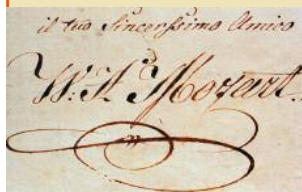 il tuo Sincerissimo Amico
W. A. Mozart